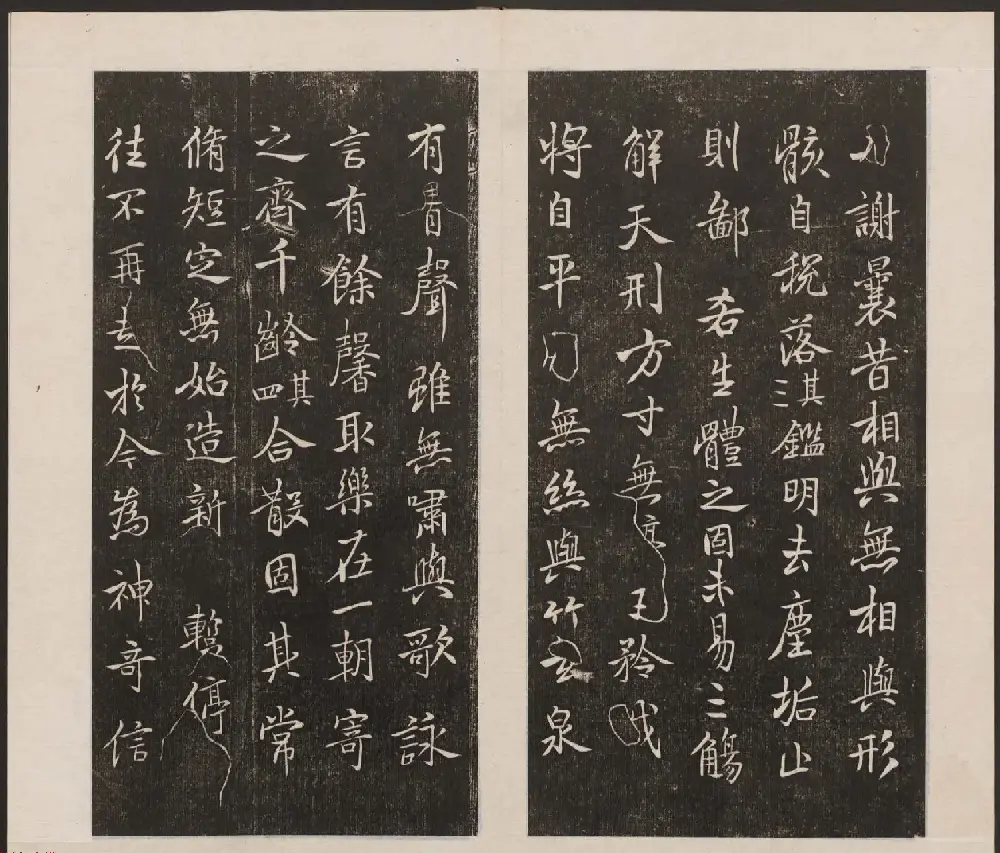 謝曩昔相與無相與形
骸自稅落其三鑑明去塵垢止
則鄙吝生體之固未易三觴
解天刑方寸無主矜伐
將自平無絲與竹玄泉
有聲雖無嘯與歌詠
言有餘馨取樂在一朝寄
之齊千齡其四合散固其常
脩短定無始造新暫停
往不再起於今為神奇信